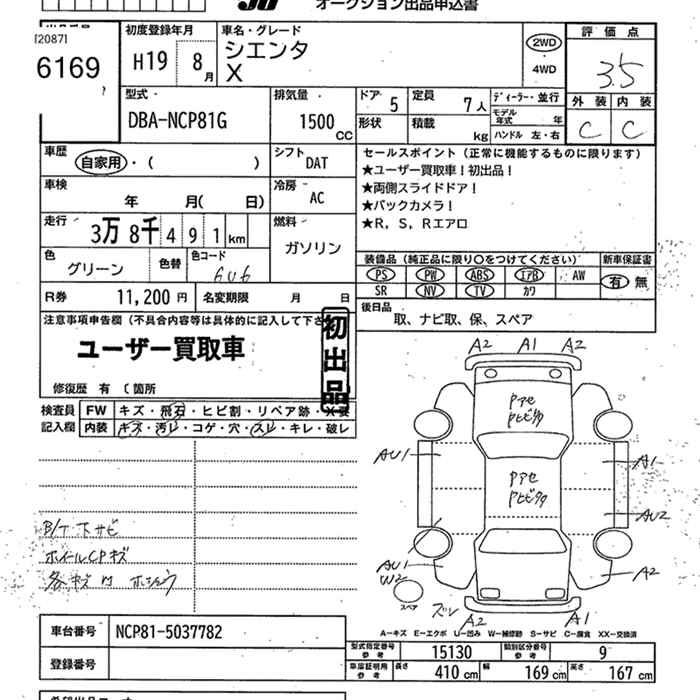 オークション出品申込書
[2087]
6169
初度登録年月
H19 8月
車名・グレード
シエンタ
X
2WD
・
4WD
評価点
3.5
外装 内装
C C
型式
DBA-NCP81G
排気量
1500 CC
ドア 5
定員 7人
ディーラー・並行
形状
積載 kg
モデル年式 年
ハンドル 左・右
車歴
自家用・( )
シフト DAT
車検
年 月( 日)
冷房 AC
走行
3万 8千 4 9 1 km
燃料
ガソリン
色
グリーン
色替
色コード
6U6
R券 11,200 円
名変期限 月 日
セールスポイント(正常に機能するものに限ります)
★ユーザー買取車!初出品!
★両側スライドドア!
★バックカメラ!
★R,S,Rエアロ
装備品(純正品に限り○をつけてください)
新車保証書
PS PW ABS エアB AW
SR NV TV カワ
有 無
後日品
取、ナビ取、保、スペア
注意事項申告欄(不具合内容等は具体的に記入して下さ
初出品
ユーザー買取車
修復歴 有 ( 箇所
検査員
記入欄
FW キズ・飛石・ヒビ割・リペア跡・X要
内装 キズ・汚レ・コゲ・穴・スレ・キレ・破レ
A2 A1 A2
Pアセ
PヒビRあ
AU1
A1
Pアセ
AU2
AU1
W2
A2
スペア
ズレ
A2 A1
B/T 下サビ
ホイールCPキズ
A-キズ E-エクボ U-凹み W-補修跡 S-サビ C-腐食 XX-交換済
車台番号 NCP81-5037782
登録番号
型式指定番号 参考 15130
類別区分番号 参考 9
車庫証明用 参考
長さ 410 cm
幅 169 cm
高さ 167 cm